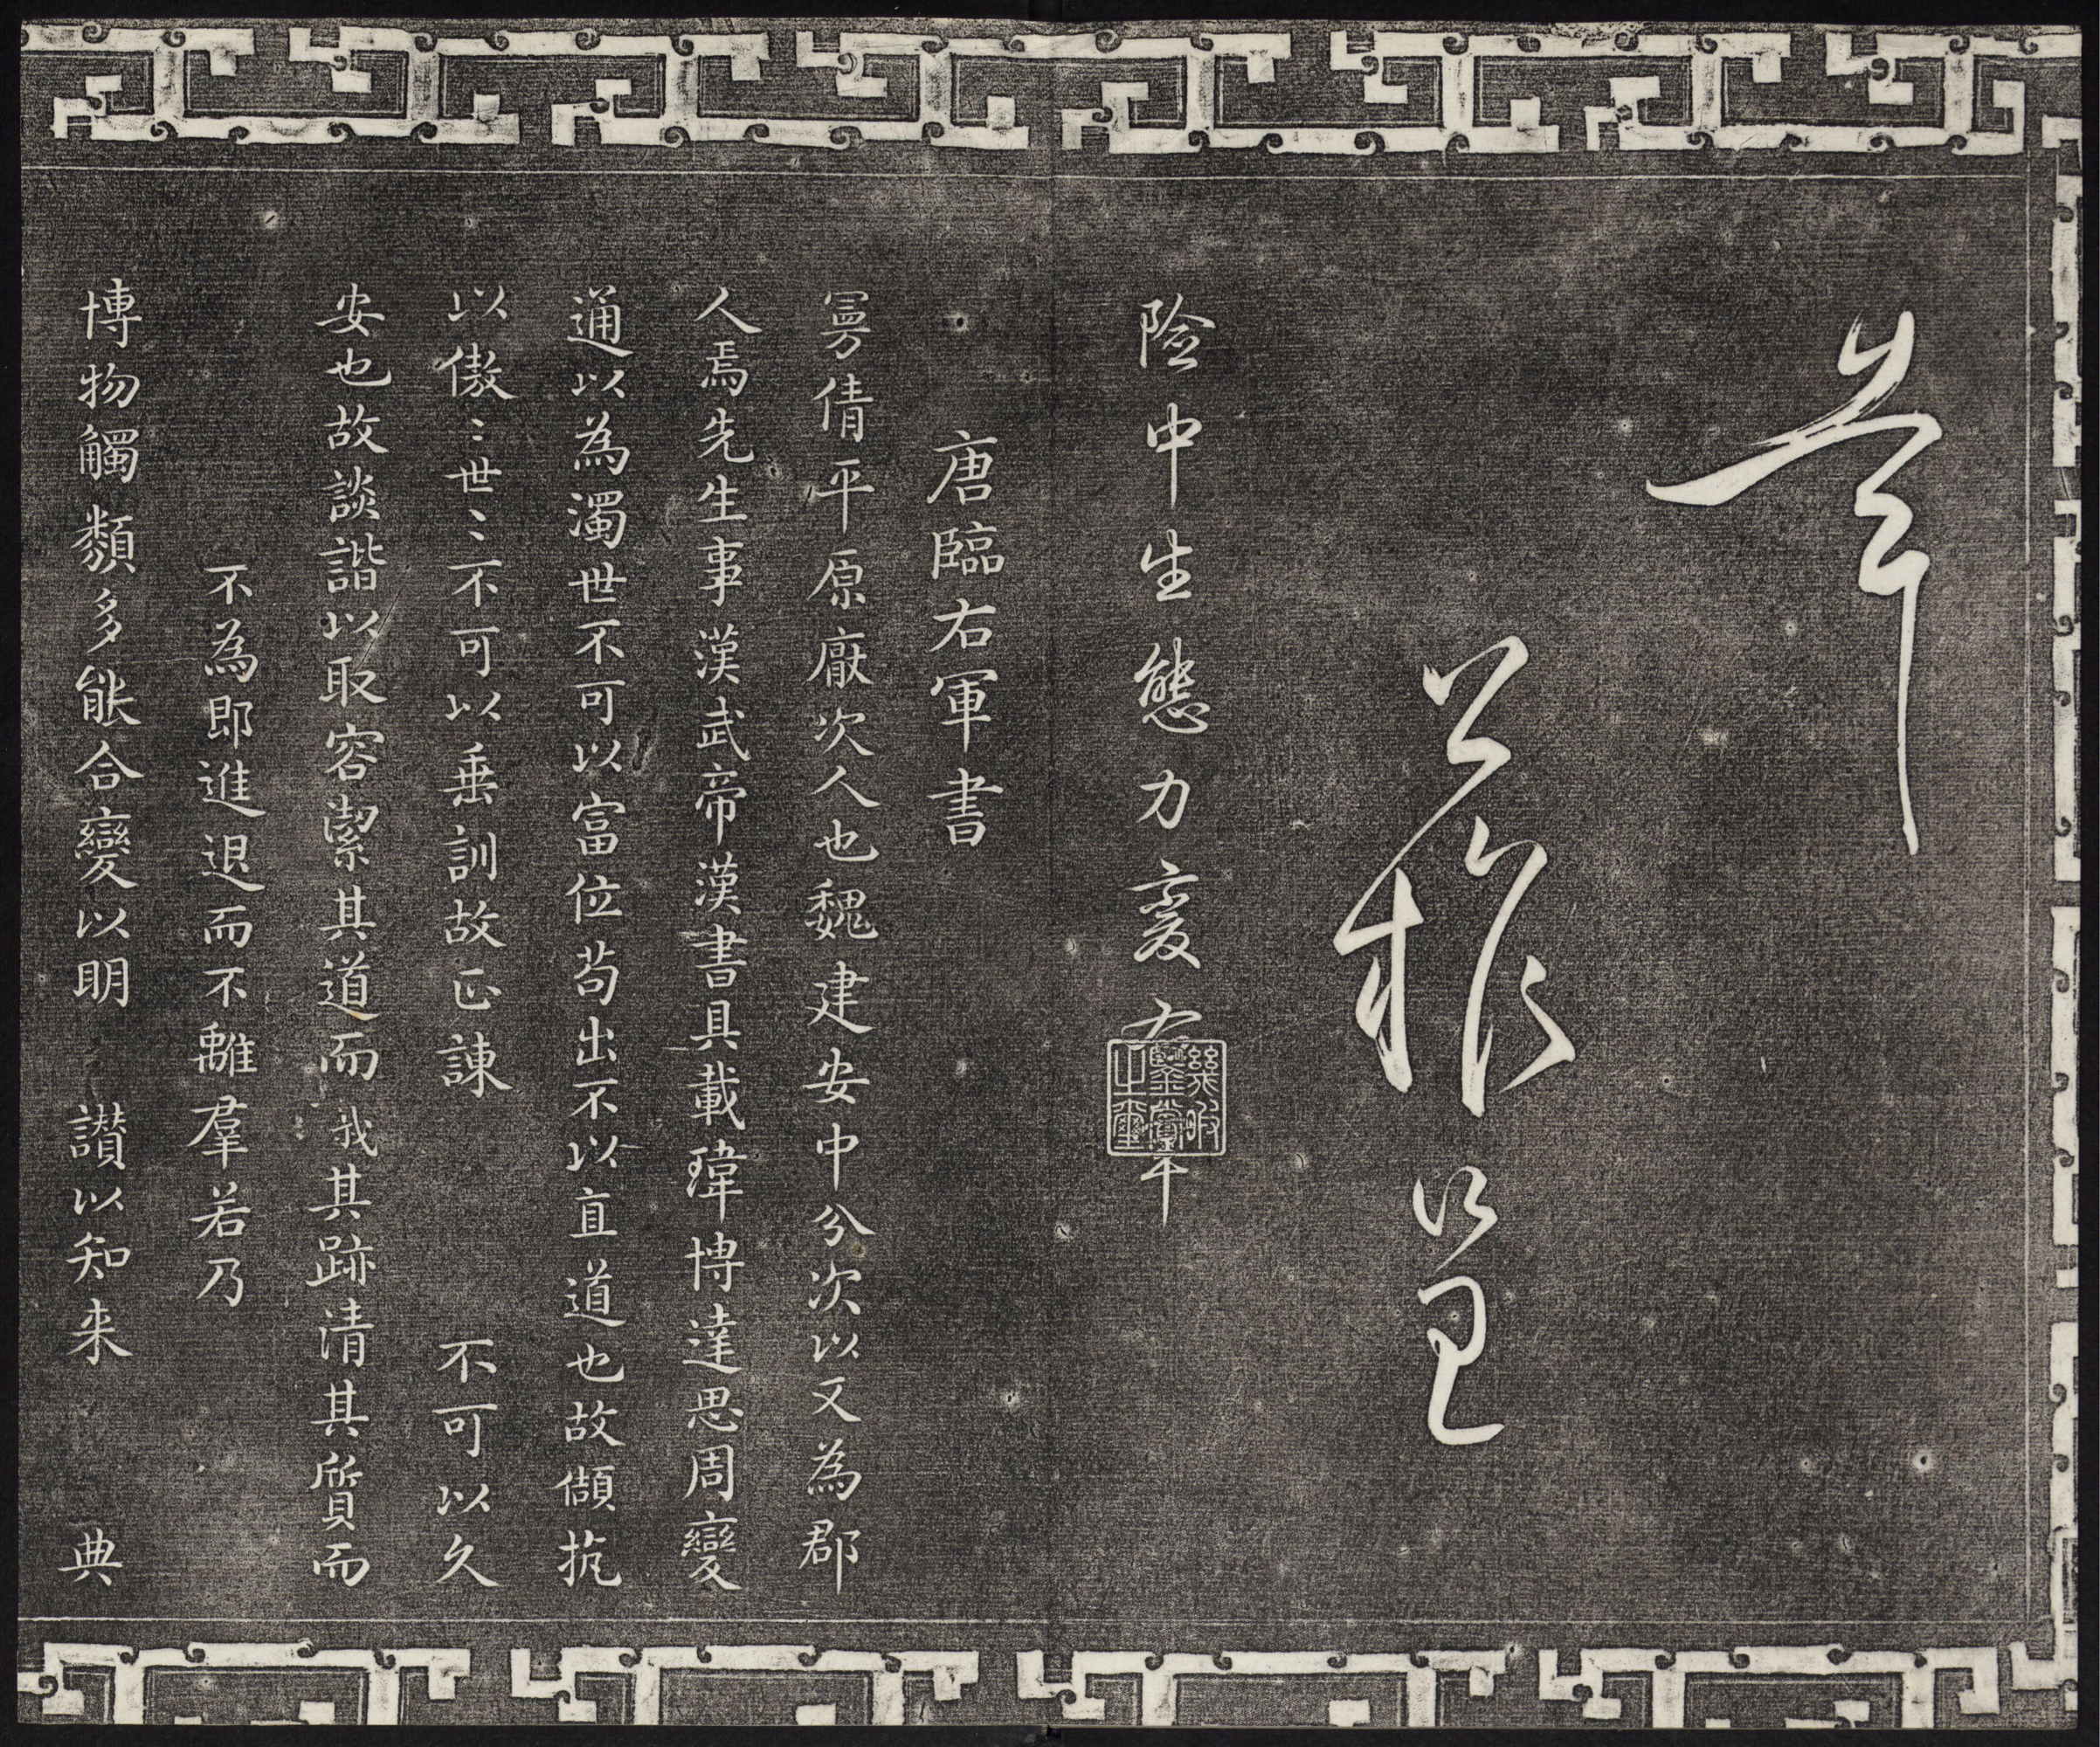 險中生態力變右軍
幾暇鑒賞之璽
唐臨右軍書
曼倩平原厭次人也魏建安中分次以又為郡
人焉先生事漢武帝漢書具載瑋博達思周變
通以為濁世不可以富位苟出不以直道也故抗
以傲〻世〻不可以垂訓故正諫 不可以久
安也故談諧以取容潔其道而我其跡清其質而
不為即進退而不離羣若乃
博物觸類多能合變以明 讃以知来 典